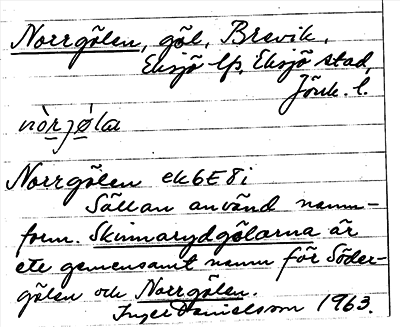 Norrgölen, göl, Brevik,
Eksjö lfs, Eksjö stad,
Jönk. l.
nòrjø̀lα
Norrgölen ek 6E 8i
Sällan använd namn-
form. Skinnarydgölarna är
ett gemensamt namn för Söder-
gölen och Norrgölen.
Inger Danielsson 1963.